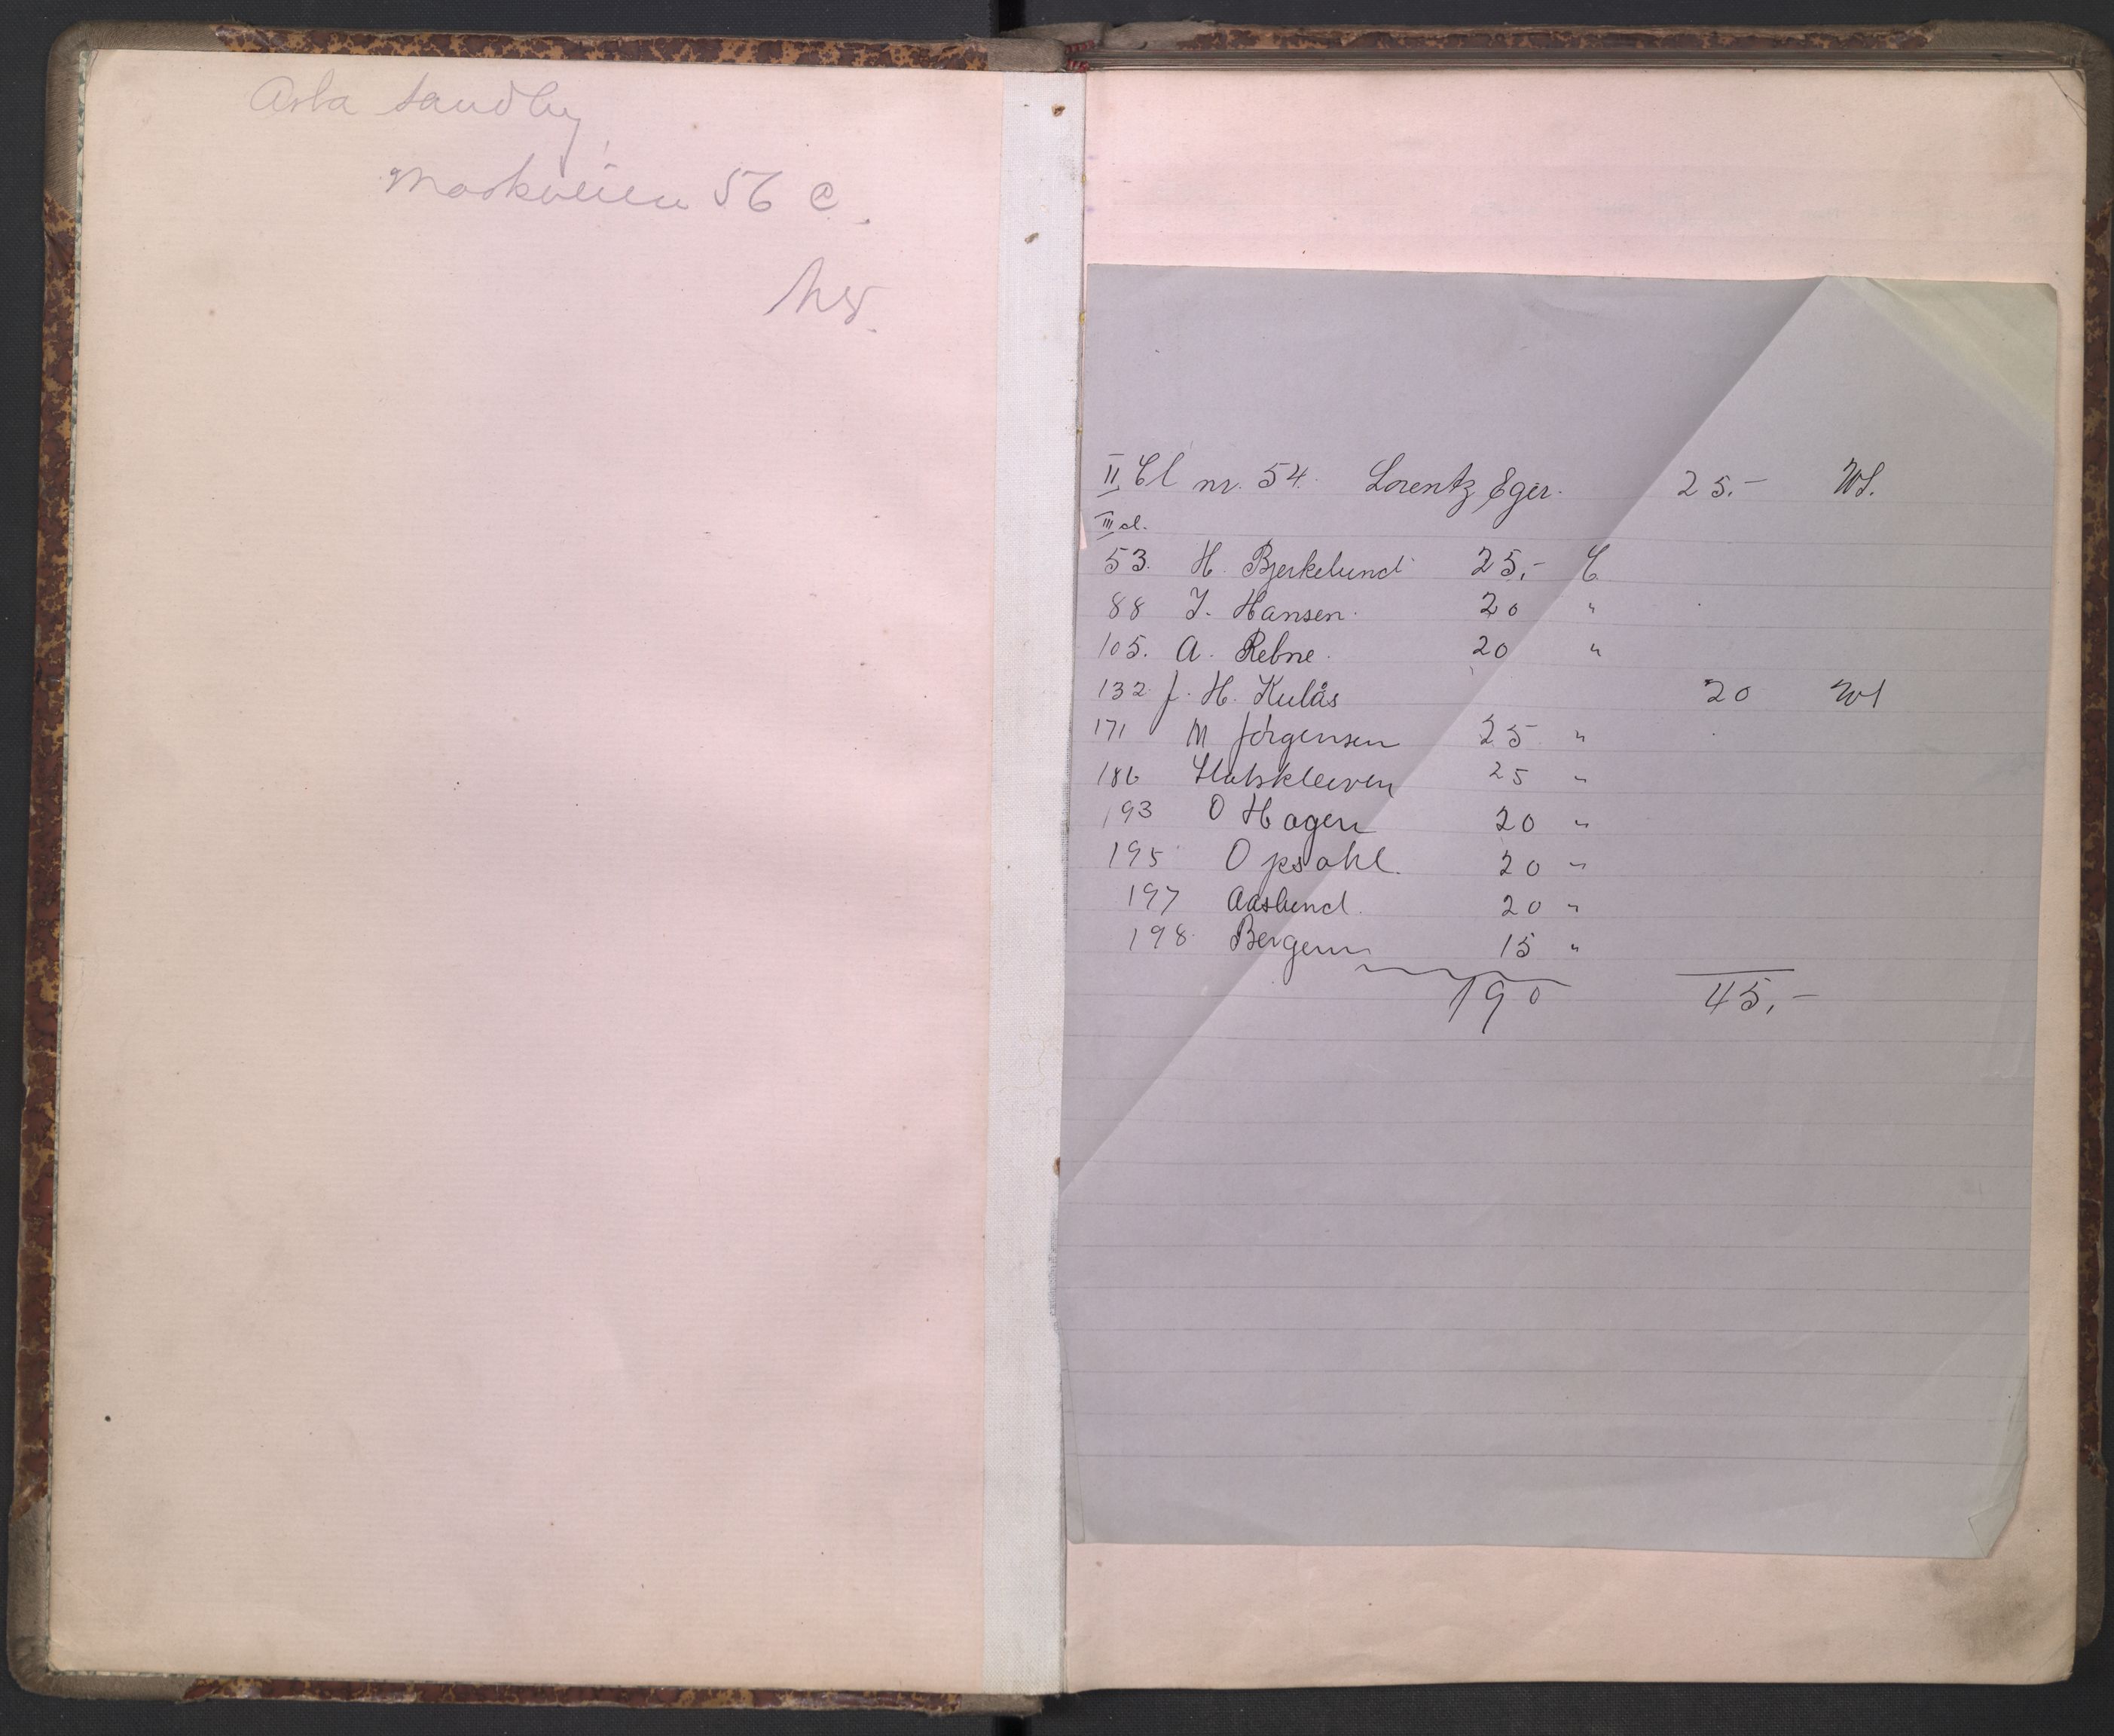 Asta Sandby,
Markveien 56 C.
II Cl nr. 54. Lorentz Eger. 25.- Wl.
III cl.
53. H. Bjerkelund 25,- C
88 J. Hansen. 20 "
105. A. Rebne. 20 "
132. J. H. Kulås 20 Wl
171 M Jörgensen 25 "
186 25 "
193 O Hagen 20 "
195 Opsahl. 20 "
197 Aaslund. 20 "
198 Bergem 15 "
190 45,-